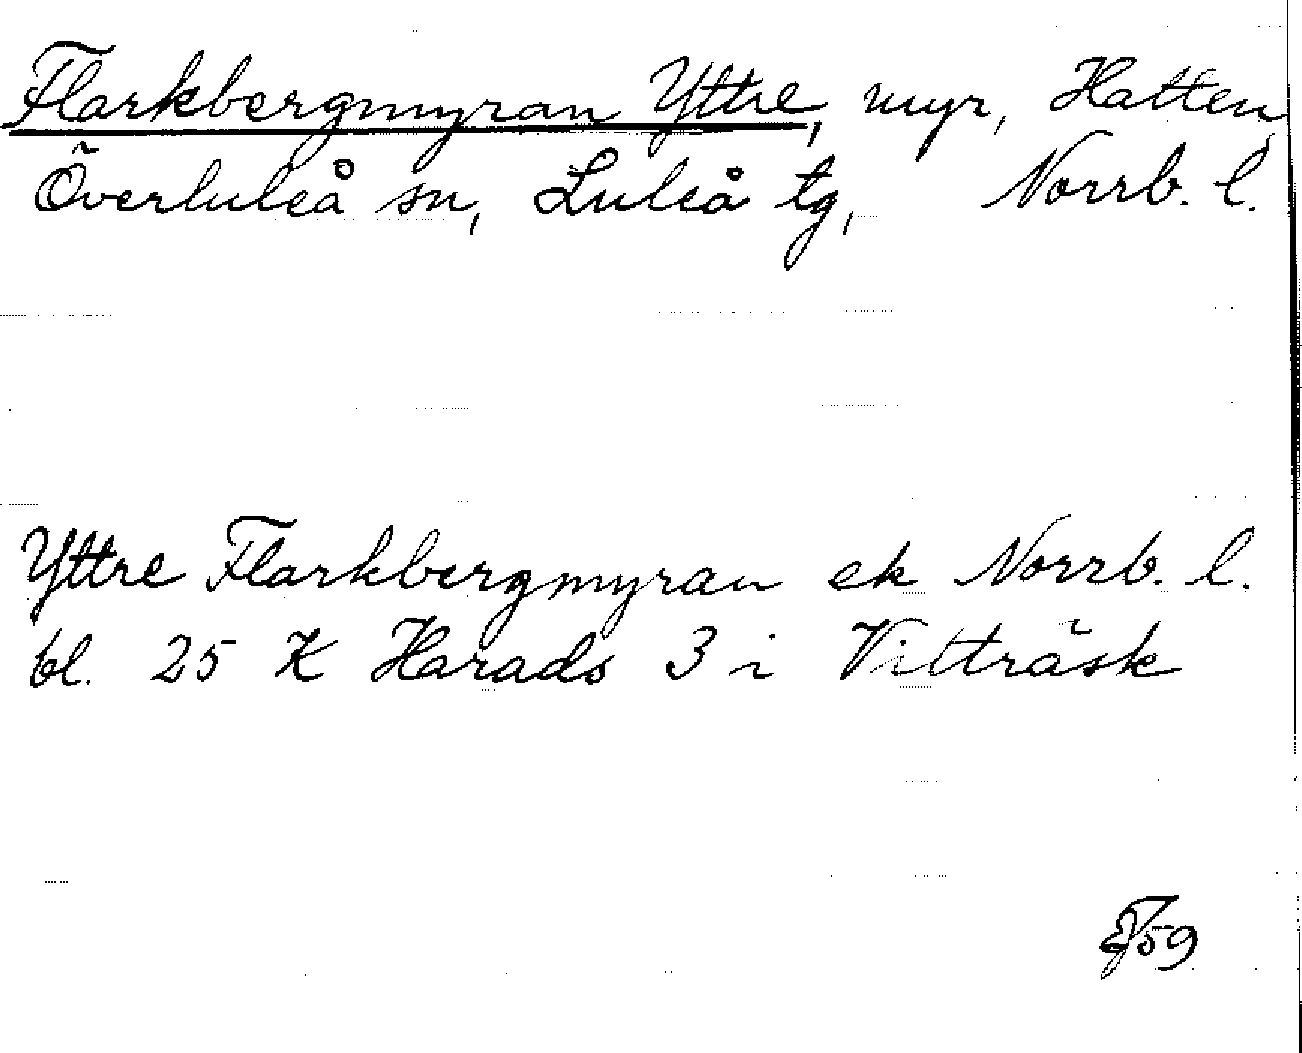 Flarkbergmyran Yttre, myr, Hatten,
Överluleå sn, Luleå tg, Norrb. l.
Yttre Flarkbergmyran ek Norrb. l.
bl. 25 K Harads 3 i Vitträsk
59